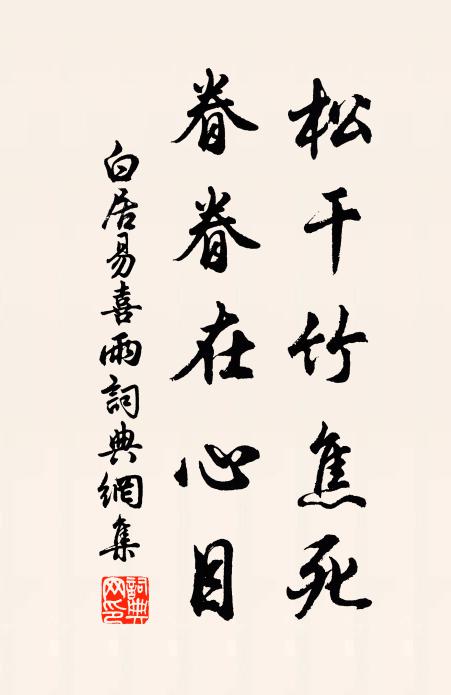 松干竹焦死
眷眷在心目
白居易喜雨詞典網集
詞典網印